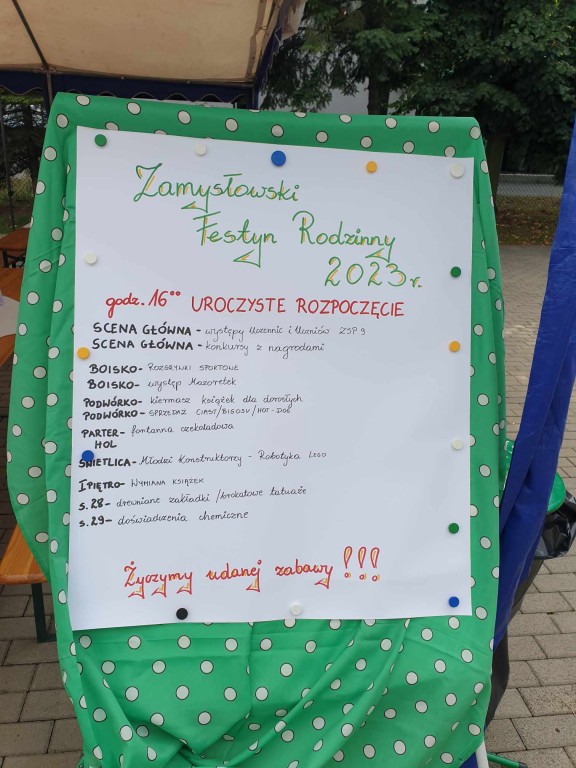 Zamysłowski
Festyn Rodzinny
2023r.
godz. 16⁰⁰ UROCZYSTE ROZPOCZĘCIE
SCENA GŁÓWNA - występy Uczennic i Uczniów ZSP 9
SCENA GŁÓWNA - konkursy z nagrodami
BOISKO - ROZGRYWKI SPORTOWE
BOISKO - występ Mażoretek
PODWÓRKO - kiermasz książek dla dorosłych
PODWÓRKO - SPRZEDAŻ CIAST/BIGOSU/HOT-DOG
PARTER - fontanna czekoladowa
HOL
ŚWIETLICA - Młodzi Konstruktorzy - Robotyka LEGO
I PIĘTRO - WYMIANA KSIĄŻEK
s.28 - drewniane zakładki / brokatowe tatuaże
s.29 - doświadczenia chemiczne
Życzymy udanej zabawy !!!